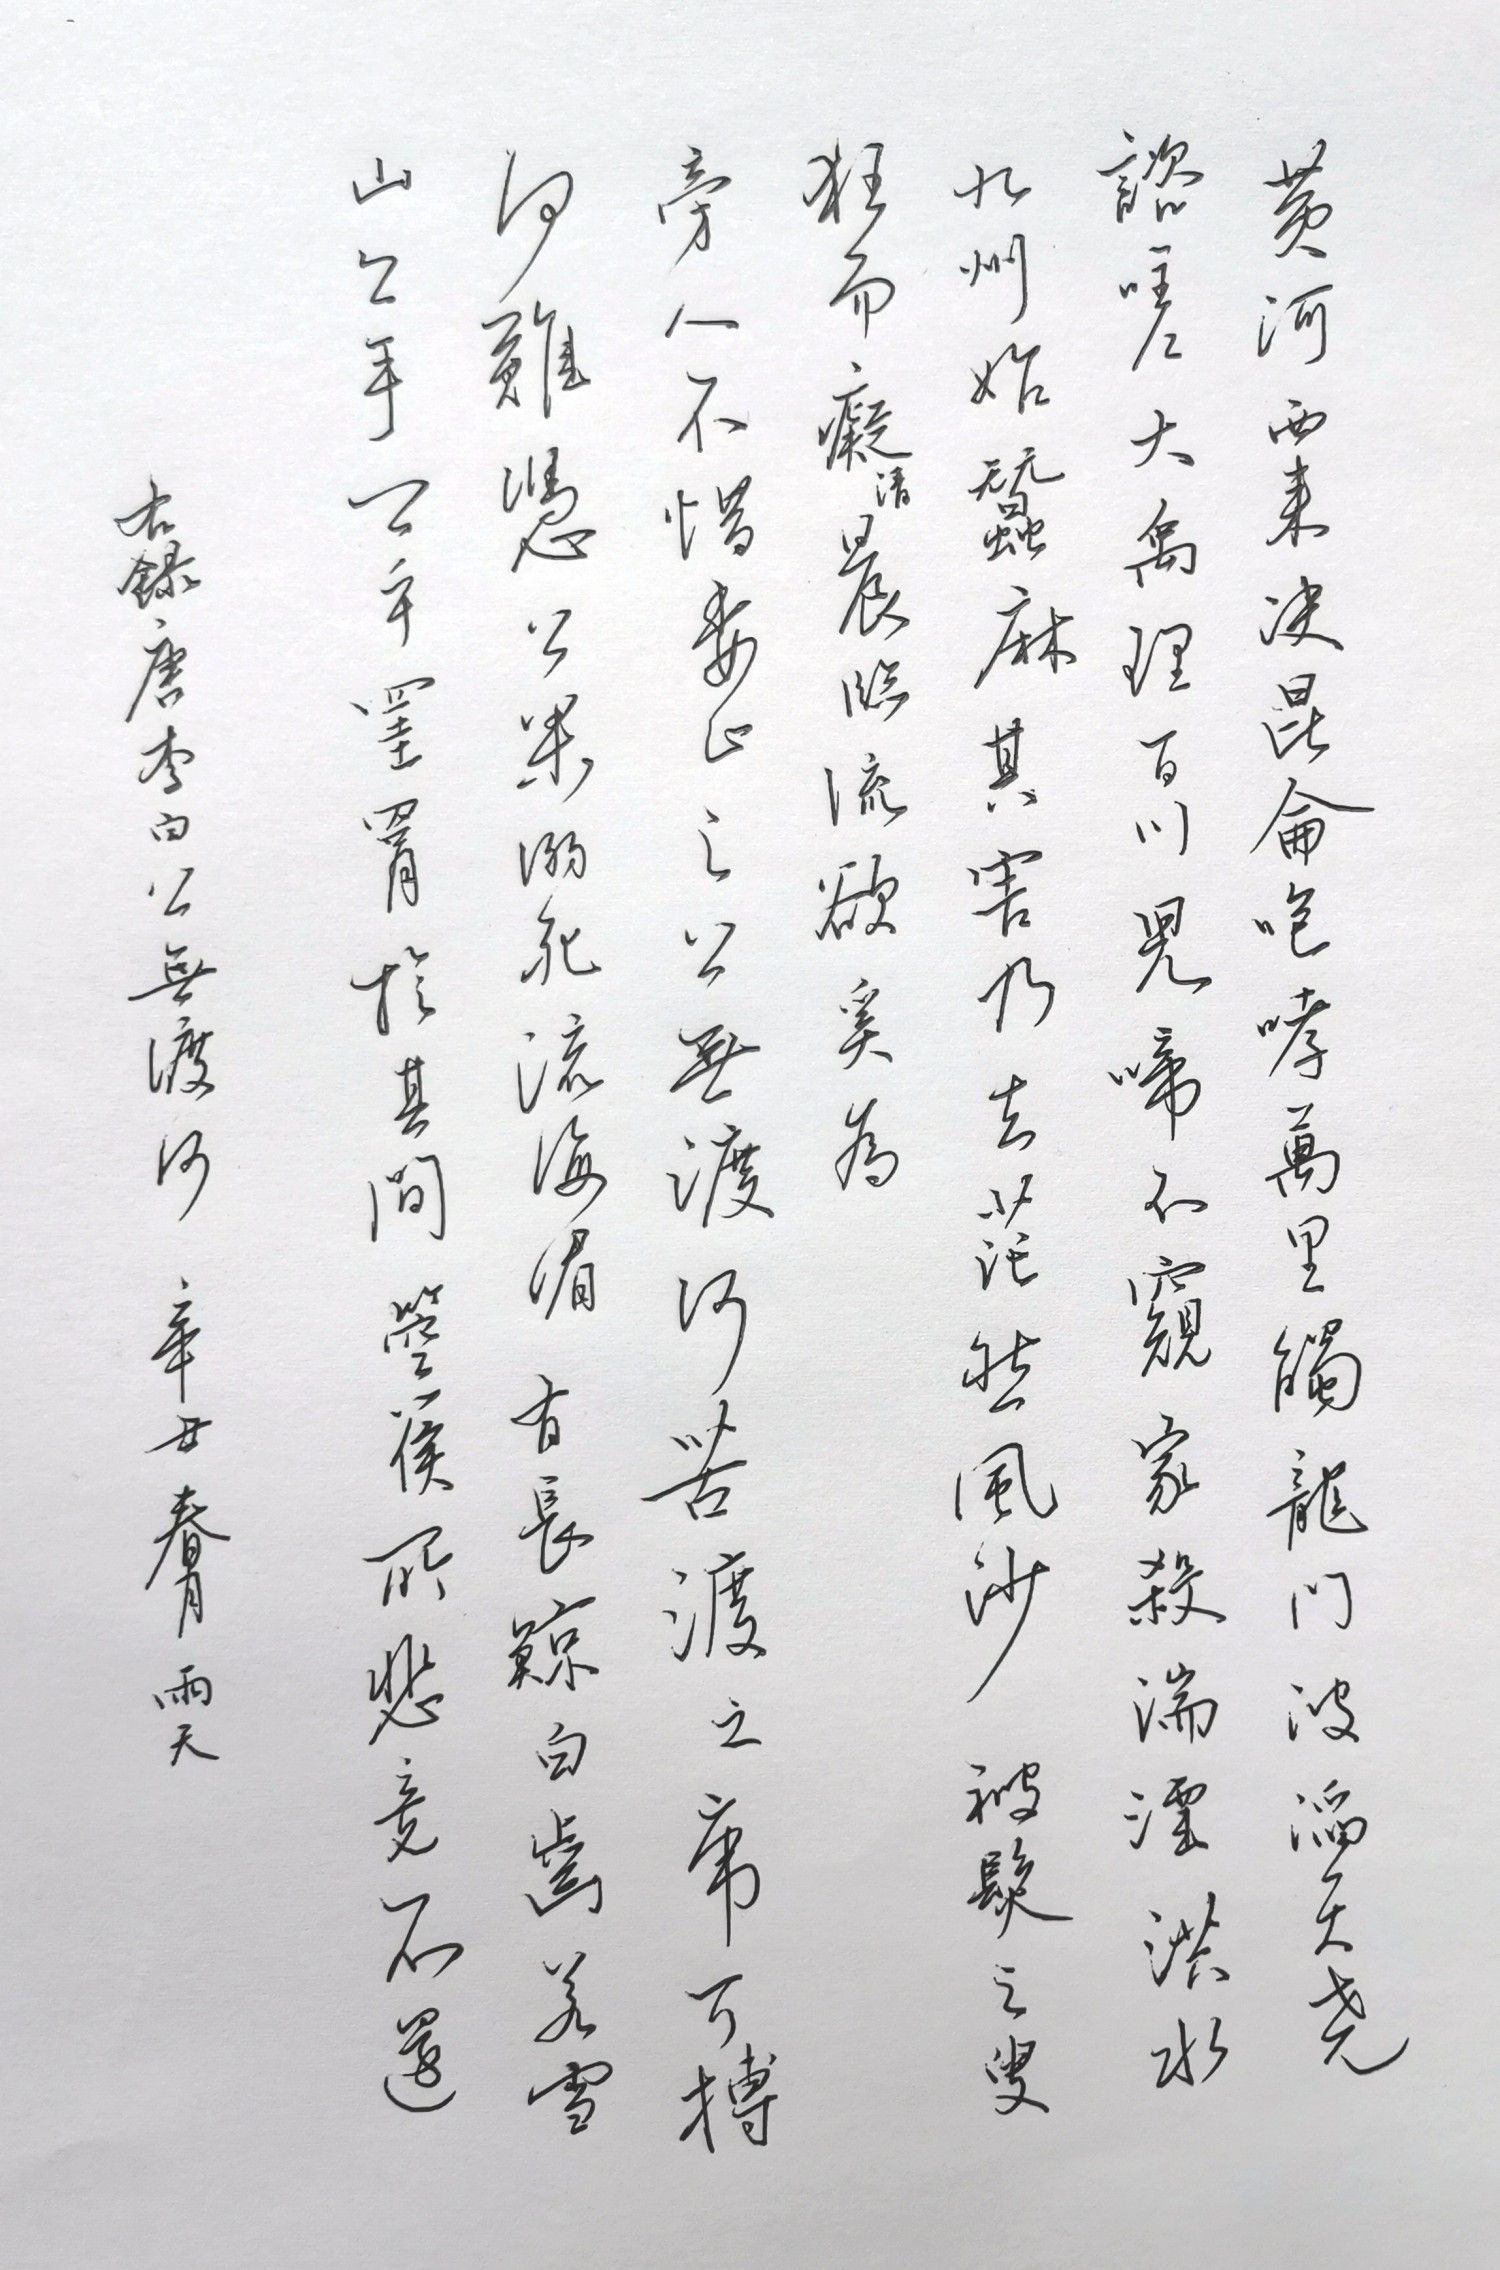 黄河西来决昆侖咆哮萬里觸龍门波滔天尧
諮嗟大禹理百川兒啼不窺家殺湍湮洪水
九州始蠶麻其害乃去茫然風沙 被髮之叟
狂而癡清晨臨流欲奚為
旁人不惜妻止之公無渡河苦渡之虎可搏
河難憑公果溺死流海湄 有長鯨白齒若雪
山公乎公乎罣罥於其間 箜篌所悲竟不還
右錄唐李白公無渡河 辛丑春月雨天